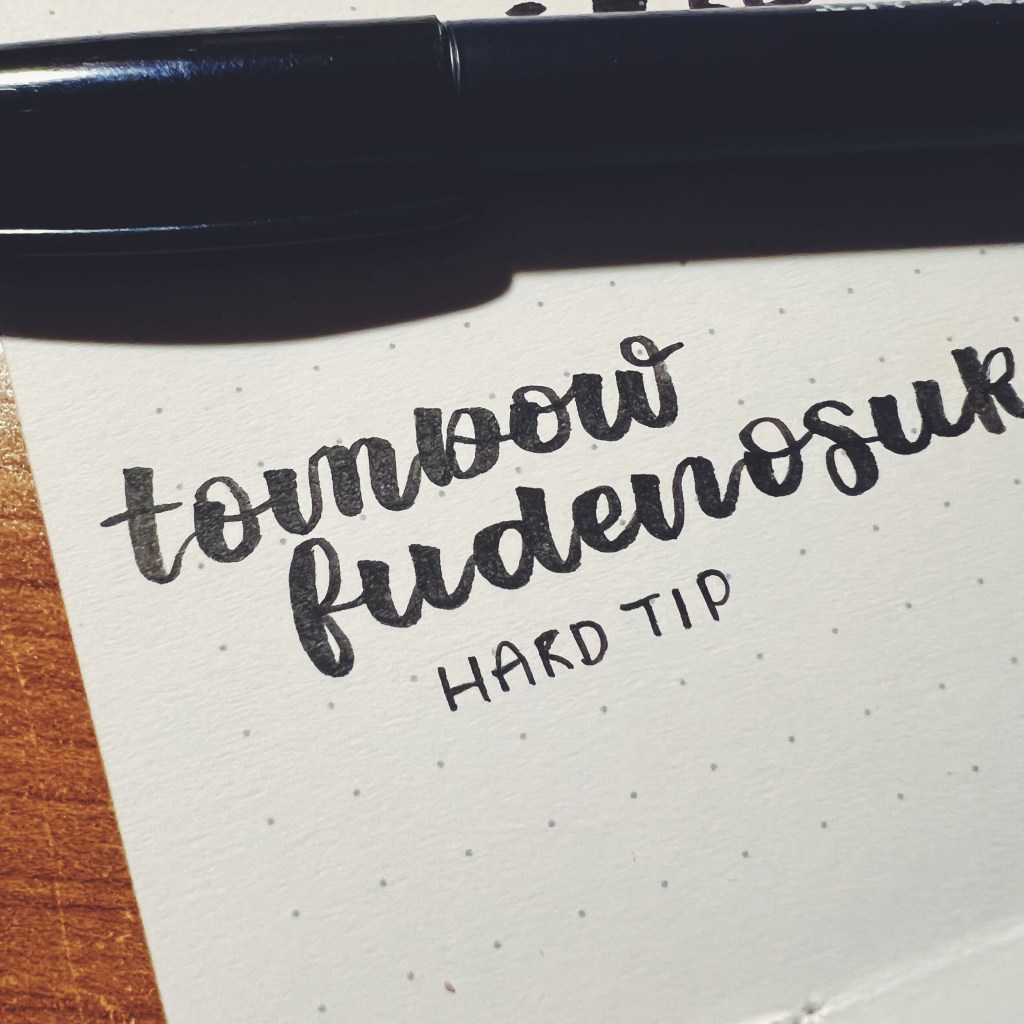 tombow
fudenosuk
HARD TIP